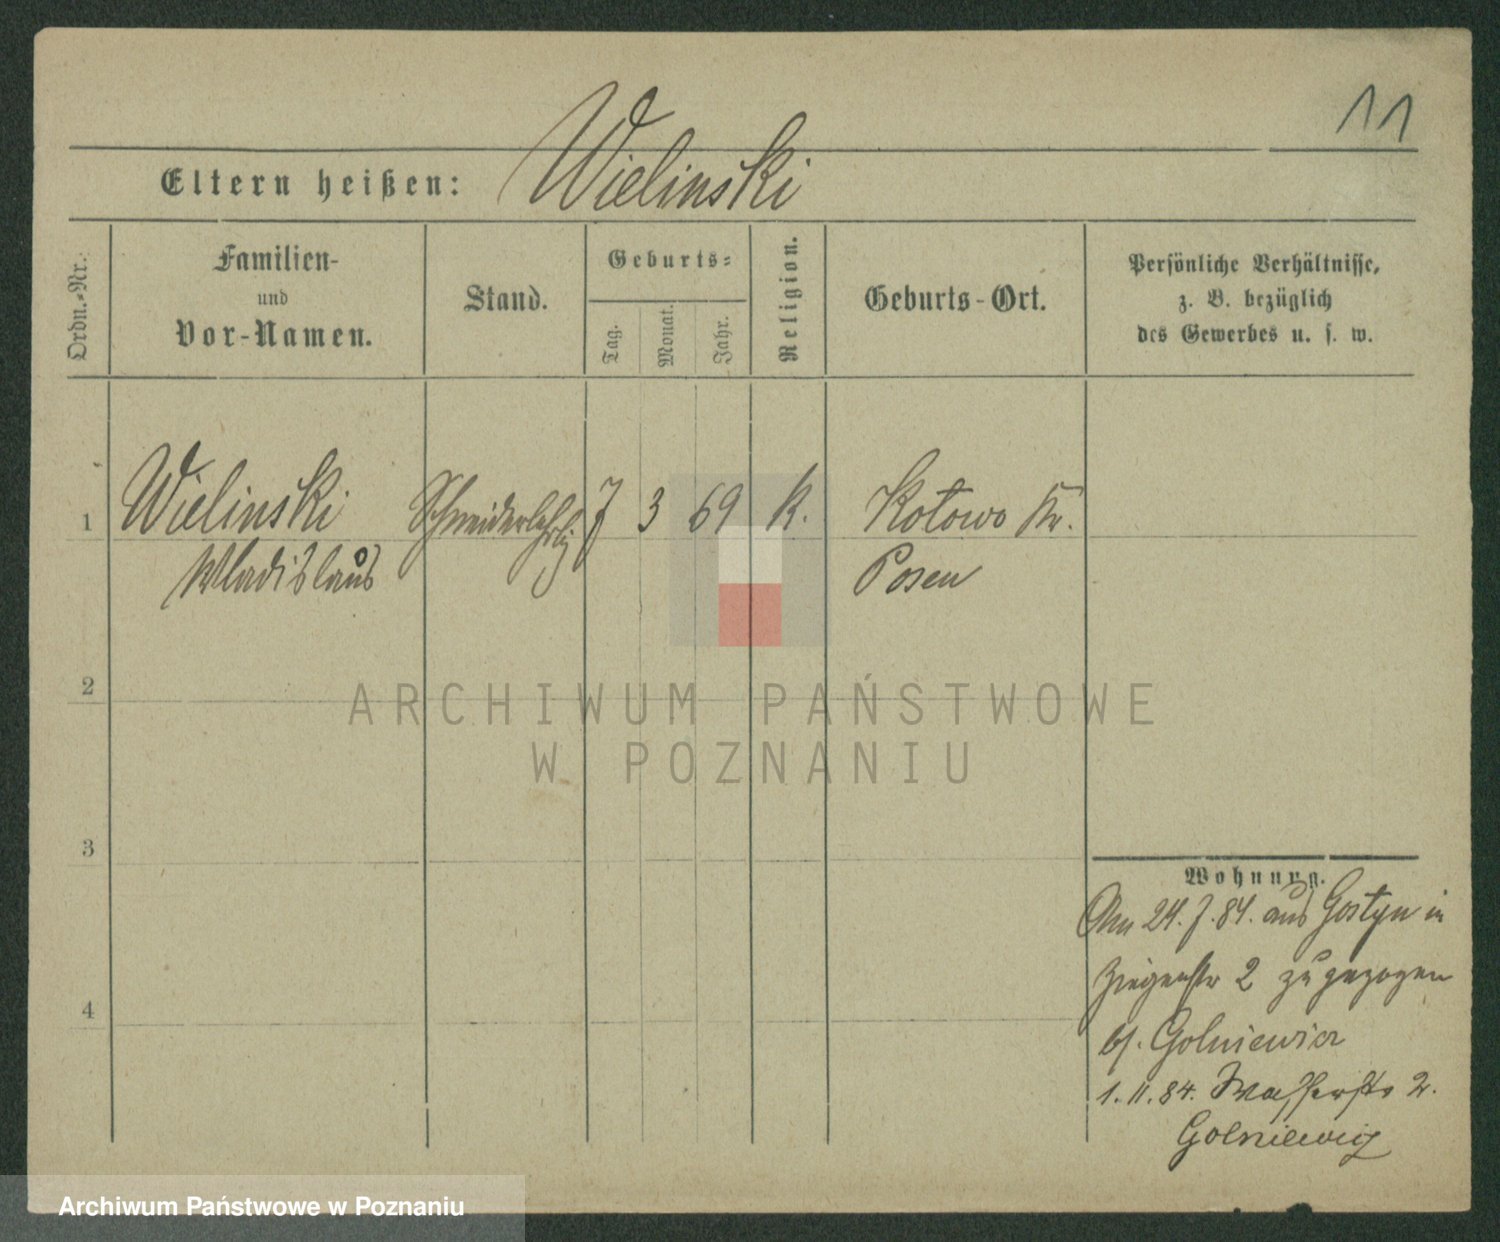 11
Eltern heißen: Wielinski
Ordn.-Nr.
Familien-
und
Vor-Namen.
Stand.
Geburts-
Tag.
Monat.
Jahr.
Religion.
Geburts-Ort.
Persönliche Verhältnisse,
z. B. bezüglich
des Gewerbes u. s. w.
1 Wielinski Schneiderlehrlg 7 3 69 K. Kotowo Kr.
Wladislaus Posen
2
ARCHIWUM PAŃSTWOWE
W POZNANIU
3
Wohnung.
Am 24. 7. 84. aus Gostyn in
Ziegenstr 2 zugezogen
4
b/. Golniewicz
1. 11. 84. Wasserstr 2.
Golniewicz
Archiwum Państwowe w Poznaniu